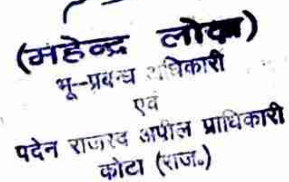 (महेन्द्र लोढा)
भू-प्रबन्ध अधिकारी
एवं
पदेन राजस्व अपील प्राधिकारी
कोटा (राज०)